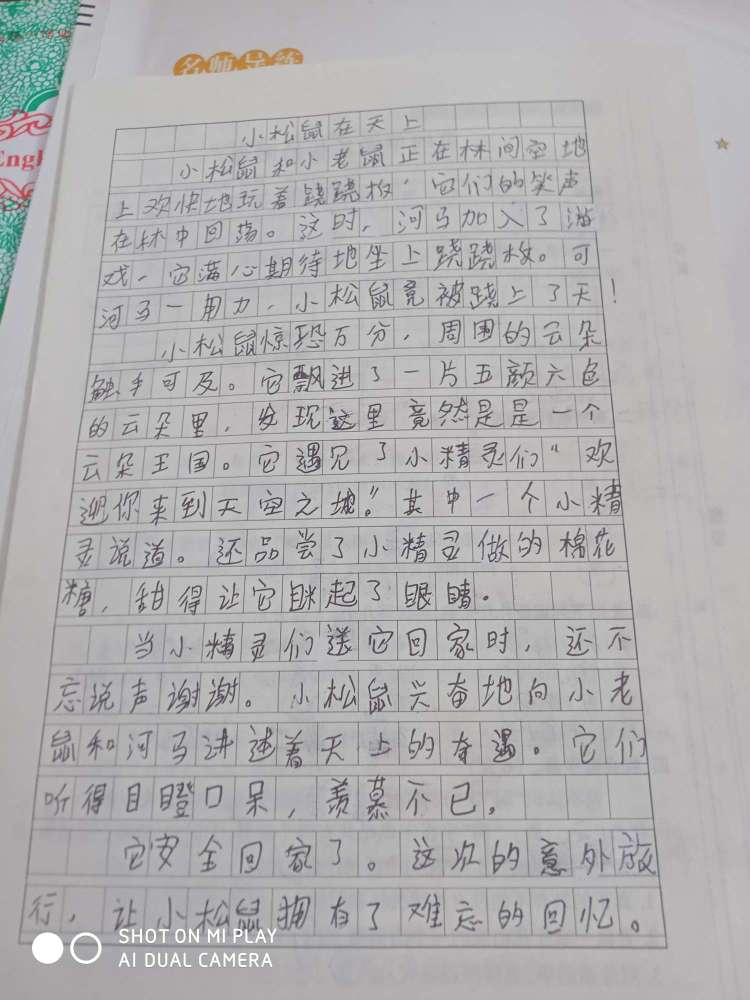 名师导练
Engl
小松鼠在天上
小松鼠和小老鼠正在林间空地
上欢快地玩着跷跷板，它们的笑声
在林中回荡。这时，河马加入了游
戏，它满心期待地坐上跷跷板。可
河马一用力，小松鼠竟被跷上了天！
小松鼠惊恐万分，周围的云朵
触手可及。它飘进了一片五颜六色
的云朵里，发现这里竟然是是一个
云朵王国。它遇见了小精灵们“欢
迎你来到天空之城。”其中一个小精
灵说道。还品尝了小精灵做的棉花
糖，甜得让它眯起了眼睛。
当小精灵们送它回家时，还不
忘说声谢谢。小松鼠兴奋地向小老
鼠和河马讲述着天上的奇遇。它们
听得目瞪口呆，羡慕不已。
它安全回家了。这次的意外放
行，让小松鼠拥有了难忘的回忆。
SHOT ON MI PLAY
AI DUAL CAMERA